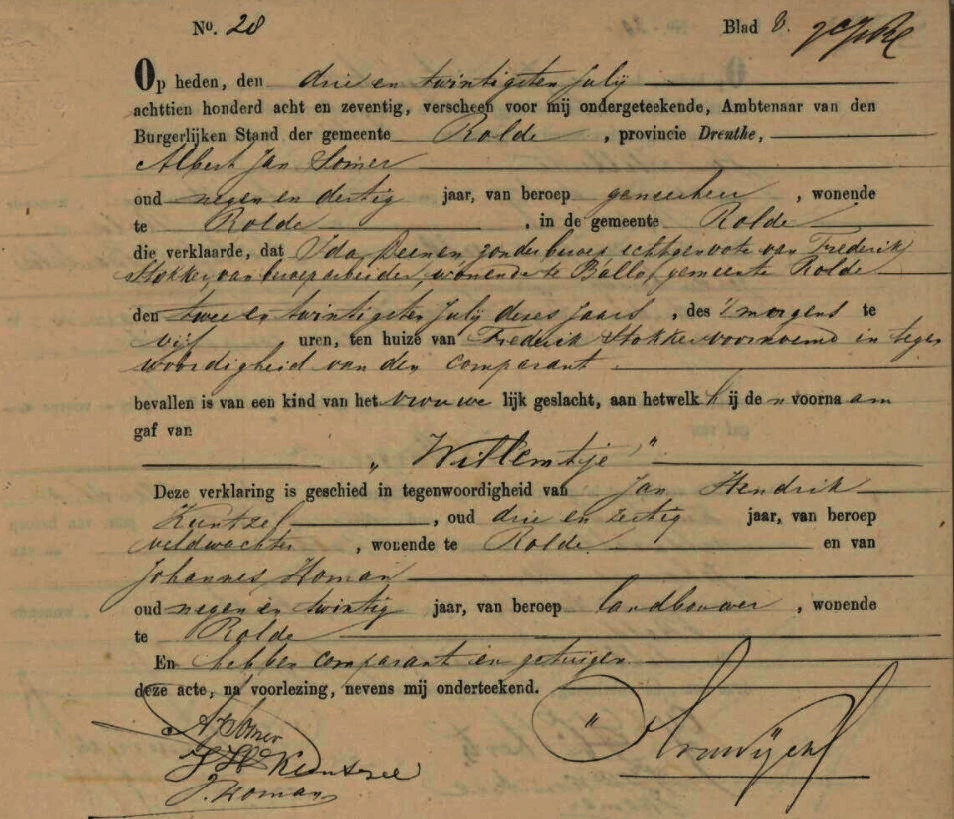 No. 28 Blad 8.
Op heden, den drie en twintigsten July
achttien honderd acht en zeventig, verscheen voor mij ondergeteekende, Ambtenaar van den
Burgerlijken Stand der gemeente Rolde, provincie Drenthe,
Albert Jan Somer
oud negen en dertig jaar, van beroep geneesheer, wonende
te Rolde, in de gemeente Rolde
die verklaarde, dat Ida Deenen, zonder beroep echtgenoote van Frederik
Stokker, van beroep arbeider, wonende te Balloo, gemeente Rolde
den twee en twintigsten July dezes jaars, des 's morgens te
vijf uren, ten huize van Frederik Stokker voornoemd in tegen
woordigheid van den comparant
bevallen is van een kind van het vrouwelijk geslacht, aan hetwelk hij de n voornaam
gaf van
„Willemtje"
Deze verklaring is geschied in tegenwoordigheid van Jan Hendrik
Kuntzel, oud drie en zestig jaar, van beroep
veldwachter, wonende te Rolde en van
Johannes Homan
oud negen en twintig jaar, van beroep landbouwer, wonende
te Rolde
En hebben comparant en getuigen
deze acte, na voorlezing, nevens mij onderteekend.
AJSomer
JH Kuntzel
J. Homan